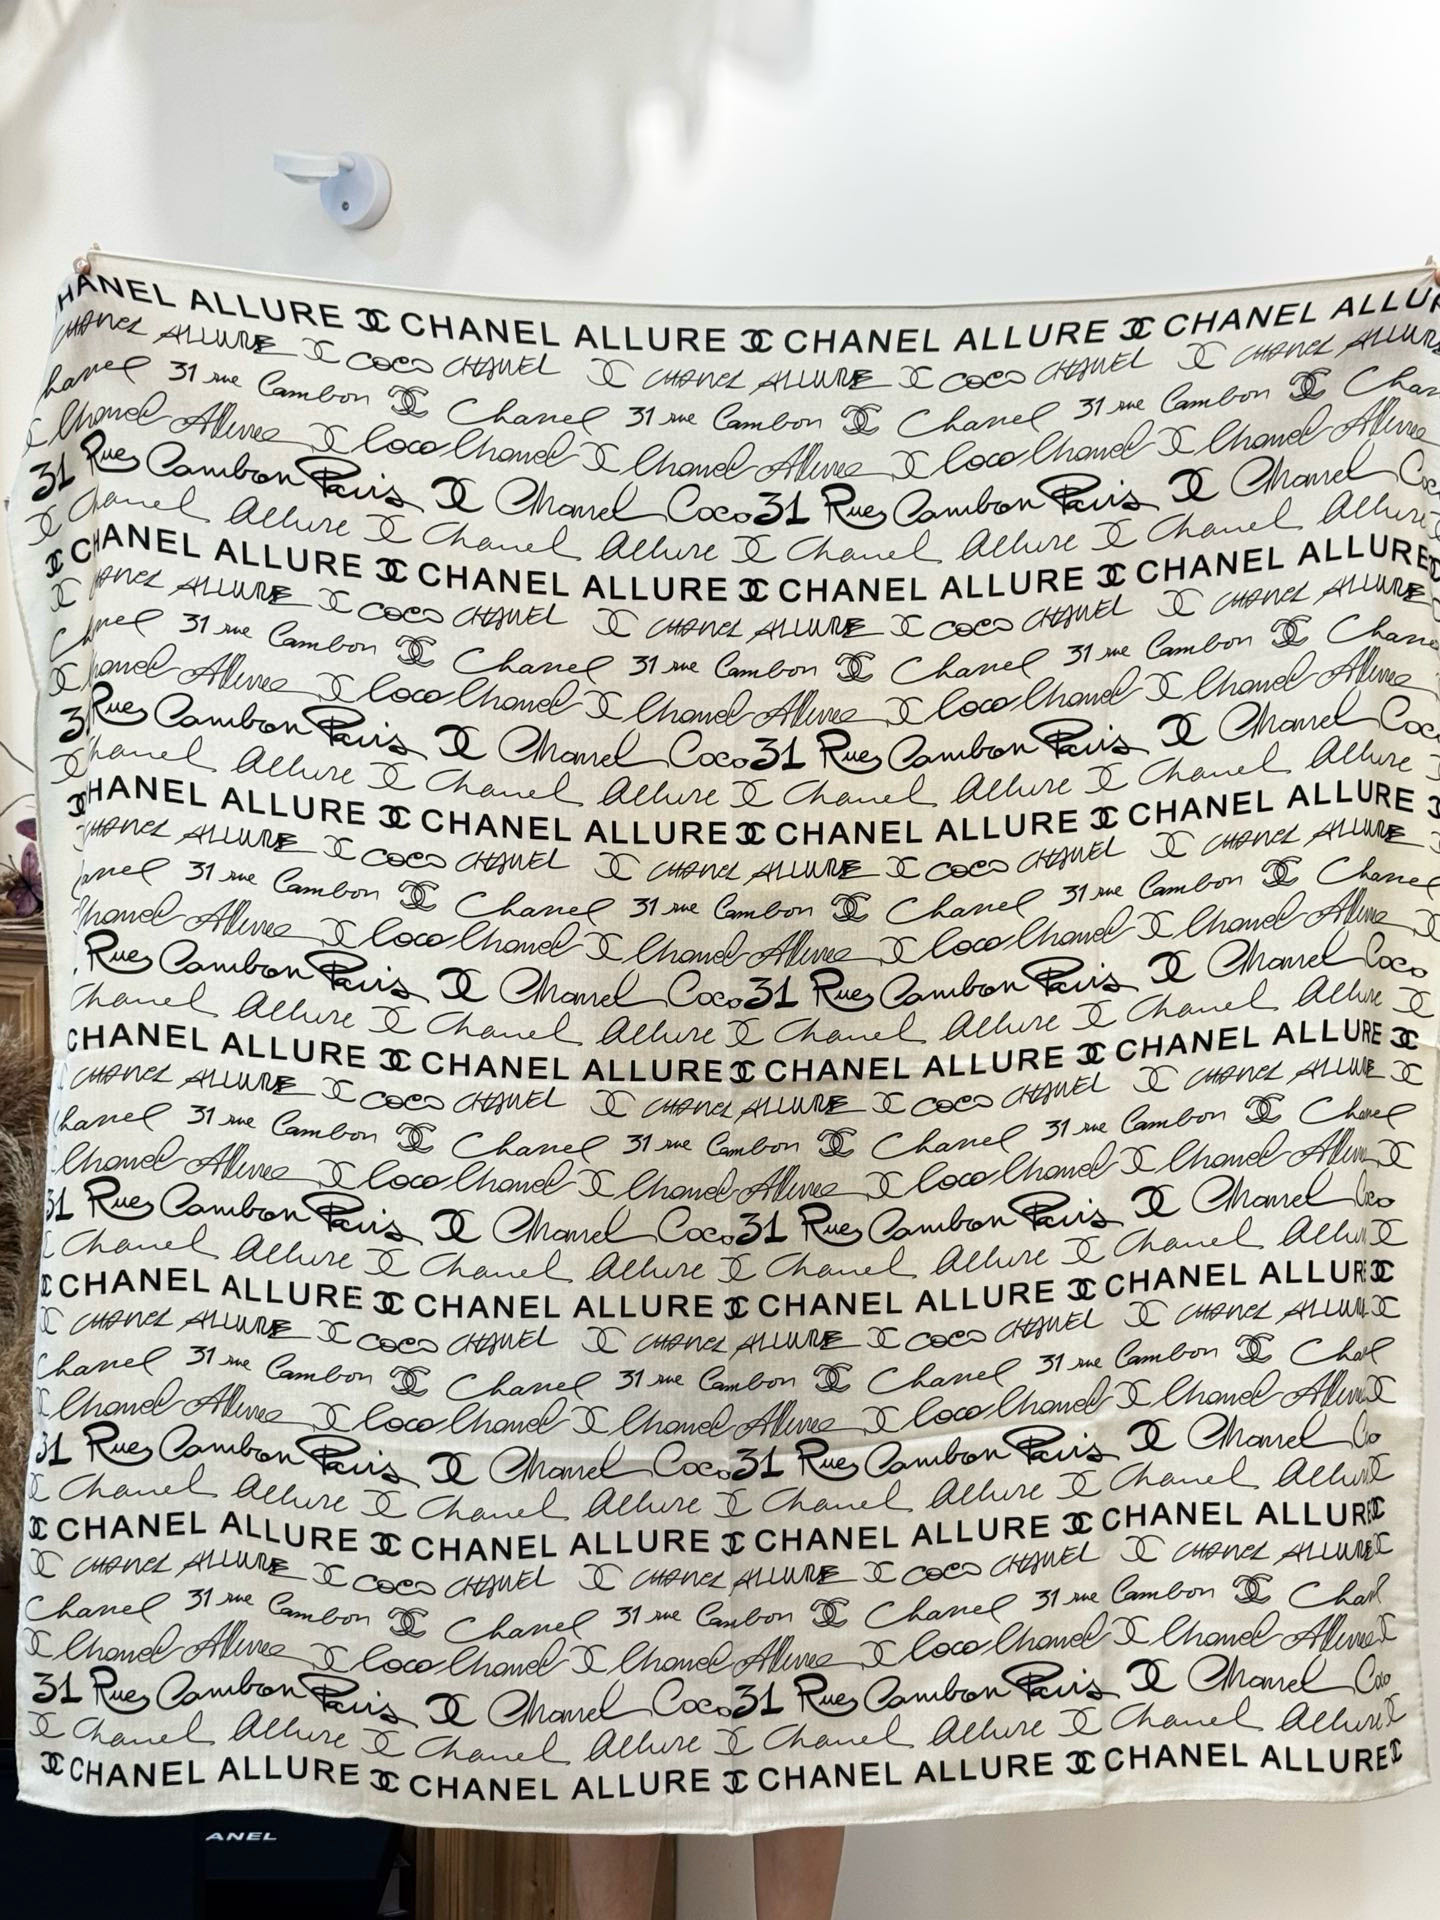 CHANEL ALLURE CHANEL ALLURE CHANEL ALLURE CHANEL ALLUR
CHANEL ALLURE COCO CHANEL CHANEL ALLURE COCO CHANEL CHANEL ALLURE
hanel 31 rue Cambon Chanel 31 rue Cambon Chanel 31 rue Cambon Chan
Chanel Allure Coco Chanel Chanel Allure Coco Chanel Chanel Allure
31 Rue Cambon Paris Chanel Coco 31 Rue Cambon Paris Chanel Coco
Chanel Allure Chanel Allure Chanel Allure Chanel Allure
CHANEL ALLURE CHANEL ALLURE CHANEL ALLURE CHANEL ALLURE
HANEL ALLURE COCO CHANEL CHANEL ALLURE COCO CHANEL CHANEL ALLURE
Ch nel 31 rue Cambon Chanel 31 rue Cambon Chanel 31 rue Cambon Chane
hanel Allure Coco Chanel Chanel Allure Coco Chanel Chanel Allure
3 Rue Cambon Paris Chanel Coco 31 Rue Cambon Paris Chanel Coco
hanel Allure Chanel Allure Chanel Allure Chanel Allure
HANEL ALLURE CHANEL ALLURE CHANEL ALLURE CHANEL ALLURE
CHANEL ALLURE COCO CHANEL CHANEL ALLURE COCO CHANEL CHANEL ALLURE
anel 31 rue Cambon Chanel 31 rue Cambon Chanel 31 rue Cambon Chanel
Chanel Allure Coco Chanel Chanel Allure Coco Chanel Chanel Allure
Rue Cambon Paris Chanel Coco 31 Rue Cambon Paris Chanel Coco
Chanel Allure Chanel Allure Chanel Allure Chanel Allure
CHANEL ALLURE CHANEL ALLURE CHANEL ALLURE CHANEL ALLURE
CHANEL ALLURE COCO CHANEL CHANEL ALLURE COCO CHANEL CHANEL ALLURE
Chanel 31 rue Cambon Chanel 31 rue Cambon Chanel 31 rue Cambon Chanel
Chanel Allure Coco Chanel Chanel Allure Coco Chanel Chanel Allure
31 Rue Cambon Paris Chanel Coco 31 Rue Cambon Paris Chanel Coco
Chanel Allure Chanel Allure Chanel Allure Chanel Allu
CHANEL ALLURE CHANEL ALLURE CHANEL ALLURE CHANEL ALLUR
CHANEL ALLURE COCO CHANEL CHANEL ALLURE COCO CHANEL CHANEL ALLUR
Chanel 31 rue Cambon Chanel 31 rue Cambon Chanel 31 rue Cambon Cha l
Chanel Allure Coco Chanel Chanel Allure Coco Chanel Chanel Allure
31 Rue Cambon Paris Chanel Coco 31 Rue Cambon Paris Chanel Co
Chanel Allure Chanel Allure Chanel Allure Chanel Allur
CHANEL ALLURE CHANEL ALLURE CHANEL ALLURE CHANEL ALLURE
CHANEL ALLURE COCO CHANEL CHANEL ALLURE COCO CHANEL CHANEL ALLURE
Chanel 31 rue Cambon Chanel 31 rue Cambon Chanel 31 rue Cambon Chan
Chanel Allure Coco Chanel Chanel Allure Coco Chanel Chanel Allure
31 Rue Cambon Paris Chanel Coco 31 Rue Cambon Paris Chanel Coo
Chanel Allure Chanel Allure Chanel Allure Chanel Allure
CHANEL ALLURE CHANEL ALLURE CHANEL ALLURE CHANEL ALLURE
ANEL